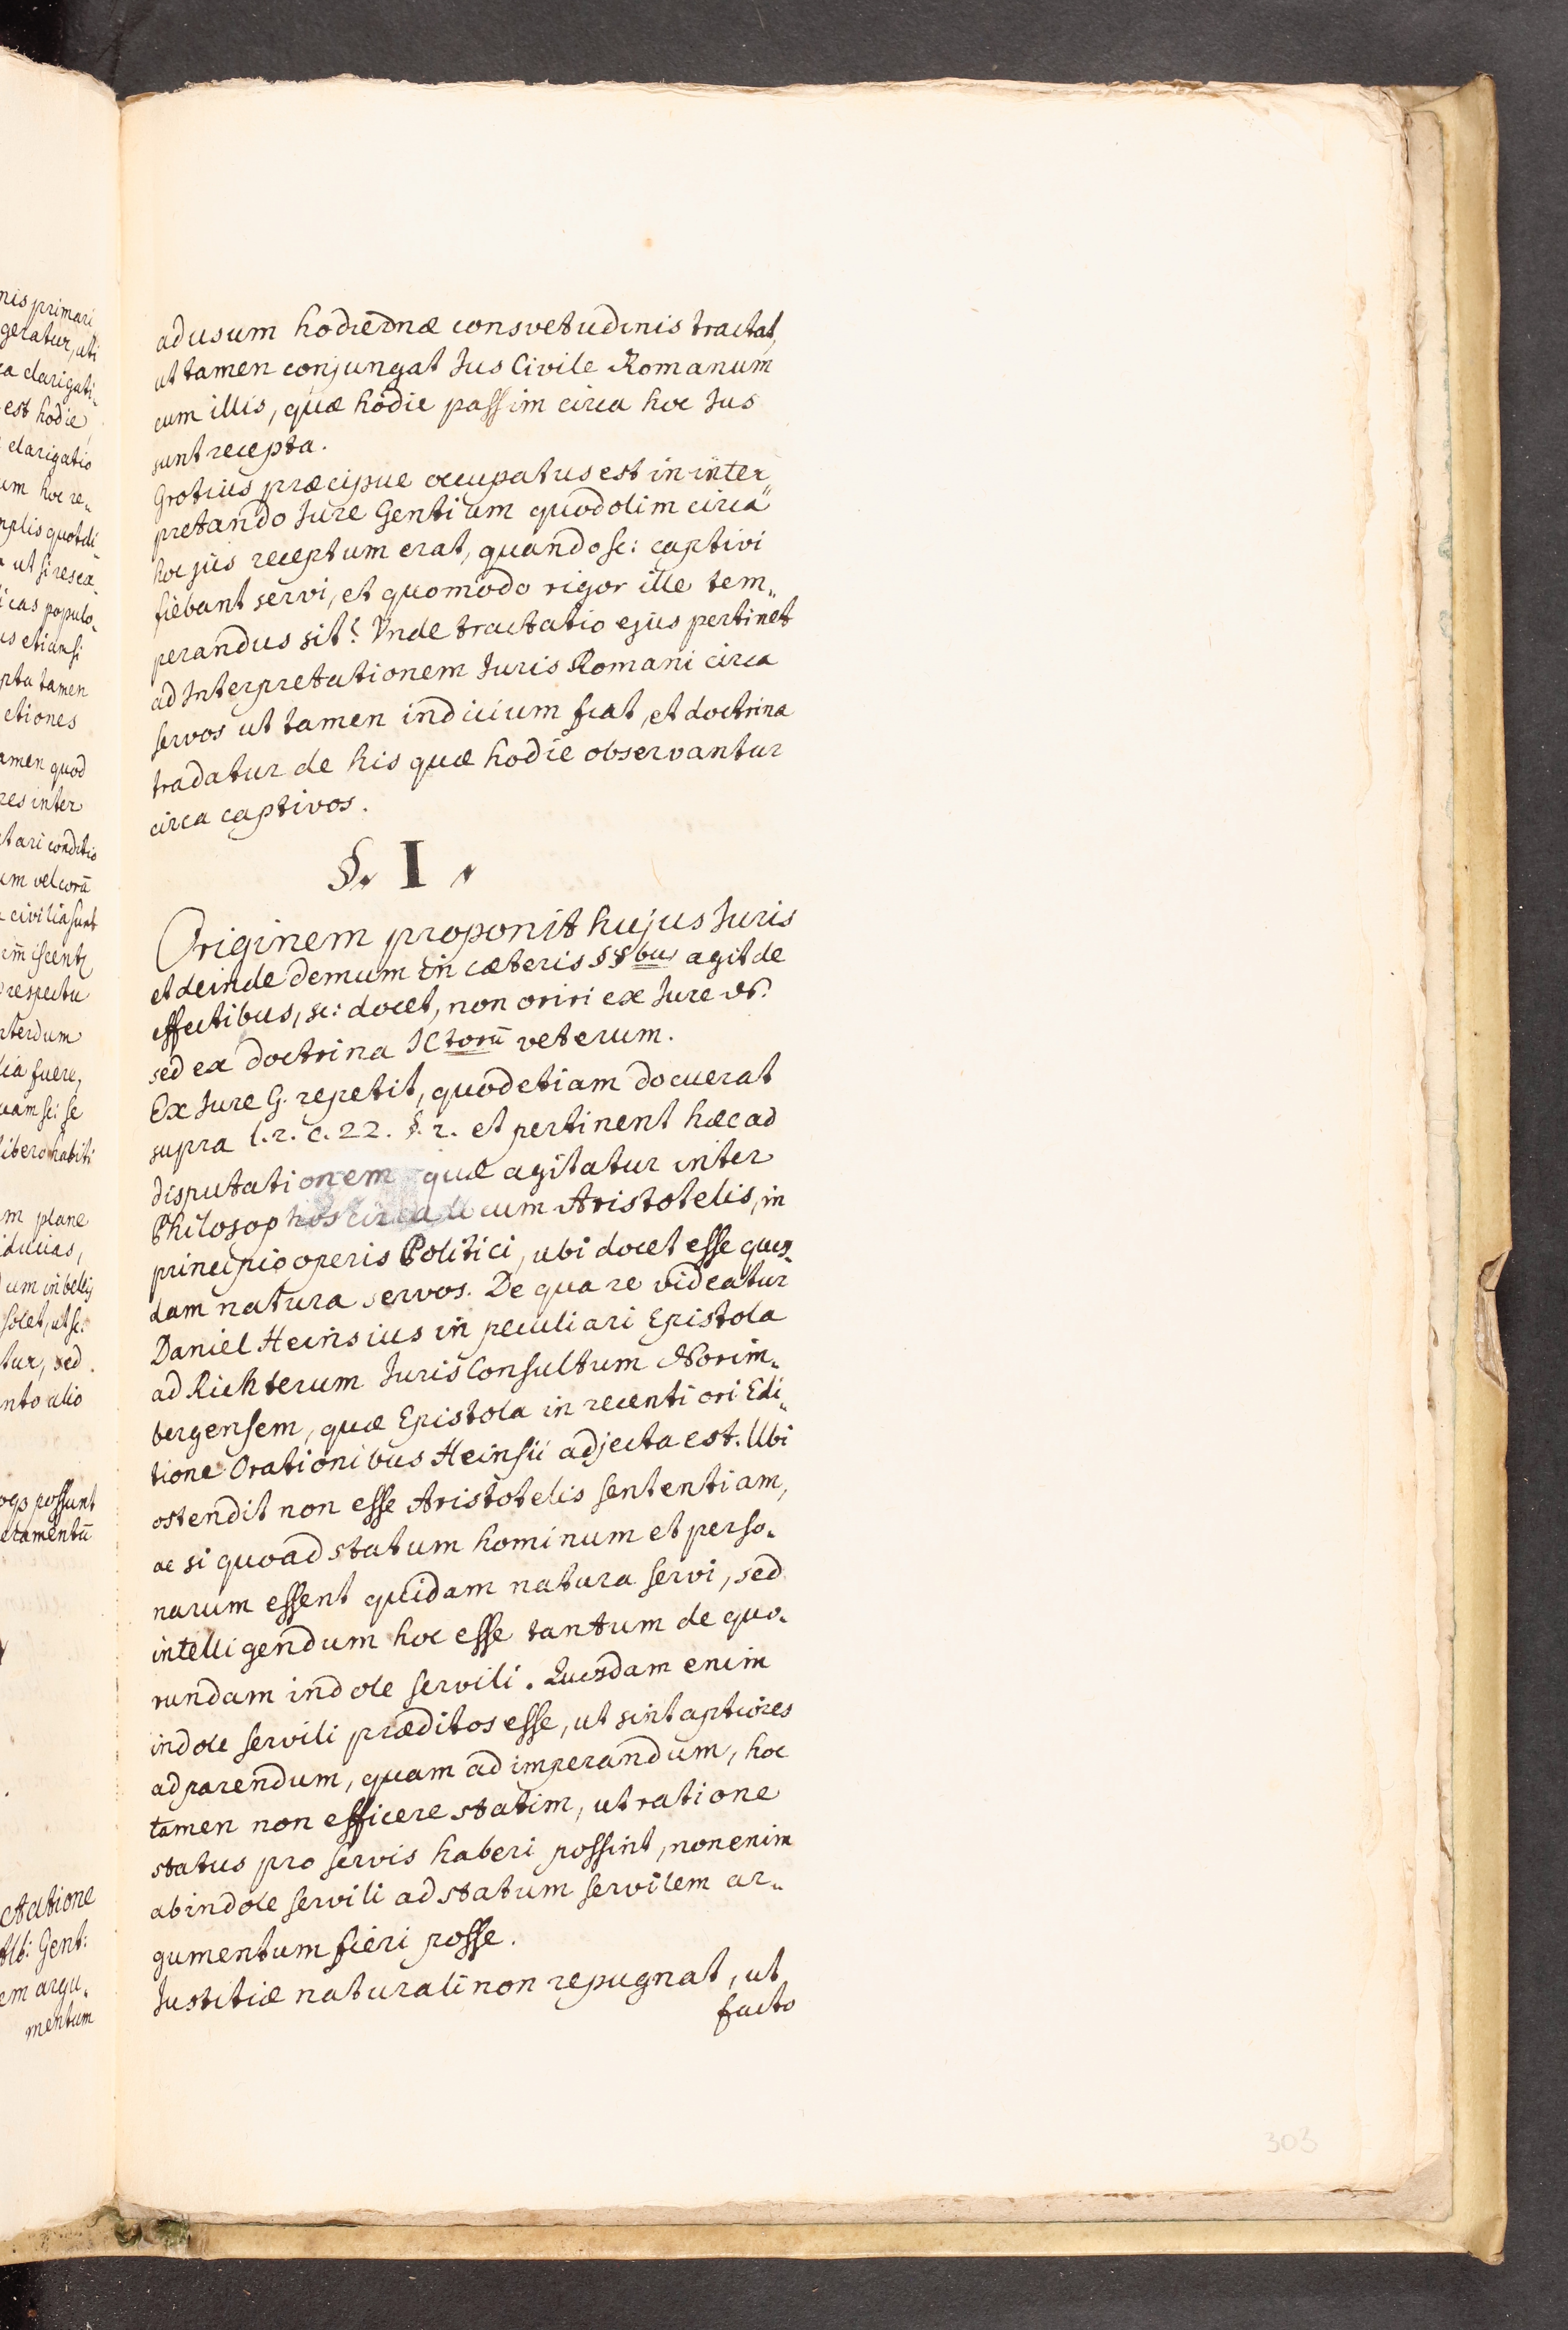 nis primari
geratur, uti
ca clarigati„
est hodie
clarigatio
um hoc re„
mplis quotdi
ut si resca
icas populo„
us etiansi
pta tamen
ctiones
amen quod
res inter
tari conditio
um vel corā
civilia sunt
respectu
nterdum
lia fuere,
uam sc: se
libero habiti
m plane
iducias,
um in bellis
solet, ut sc:
tur, sed
nto alio
possunt
cramentū
Actione
Alb: Gent:
em argu„
mentum
ad usum hodiernæ consvetudinis tractat,
ut tamen conjungat Jus Civile Romanum
cum illis, quæ hodie passim circa hoc Jus
sunt recepta.
Grotius præcipue occupatus est in inter„
pretando Jure Gentium quod olim circa
hoc jus receptum erat, quando sc: captivi
fiebant servi, et quomodo rigor ille tem„
perandus sit? Unde tractatio ejus pertinet
ad Interpretationem Juris Romani circa
servos ut tamen indicium fiat, et doctrina
tradatur de his quæ hodie observantur
circa captivos.
§. I.
Originem proponit hujus Juris
et deinde demum in cæteris §§bus agit de
effectibus, sc: docet, non oriri ex Jure N.
sed ex doctrina JCtorū veterum.
Ex Jure G. repetit, quod etiam docuerat
supra l. 2. c. 22. §. 2. et pertinent hæc ad
disputationem quæ agitatur inter
Philosophos circa locum Aristotelis, in
principio operis Politici, ubi docet esse quos„
dam natura servos. De qua re videatur
Daniel Heinsius in peculiari Epistola
ad Richterum JurisConsultum Norim„
bergensem, quæ Epistola in recentiori Edi„
tione Orationibus Heinsii adjecta est. Ubi
ostendit non esse Aristotelis sententiam,
ac si quoad statum hominum et perso„
narum essent quidam natura servi, sed
intelligendum hoc esse tantum de quo„
rundam indole servili. Quosdam enim
indole servili præditos esse, ut sint aptiores
ad parendum, quam ad imperandum, hoc
tamen non efficere statim, ut ratione
status pro servis haberi possint, non enim
ab indole servili ad statum servilem ar„
gumentum fieri posse.
Justitiæ naturali non repugnat, ut
facto
303